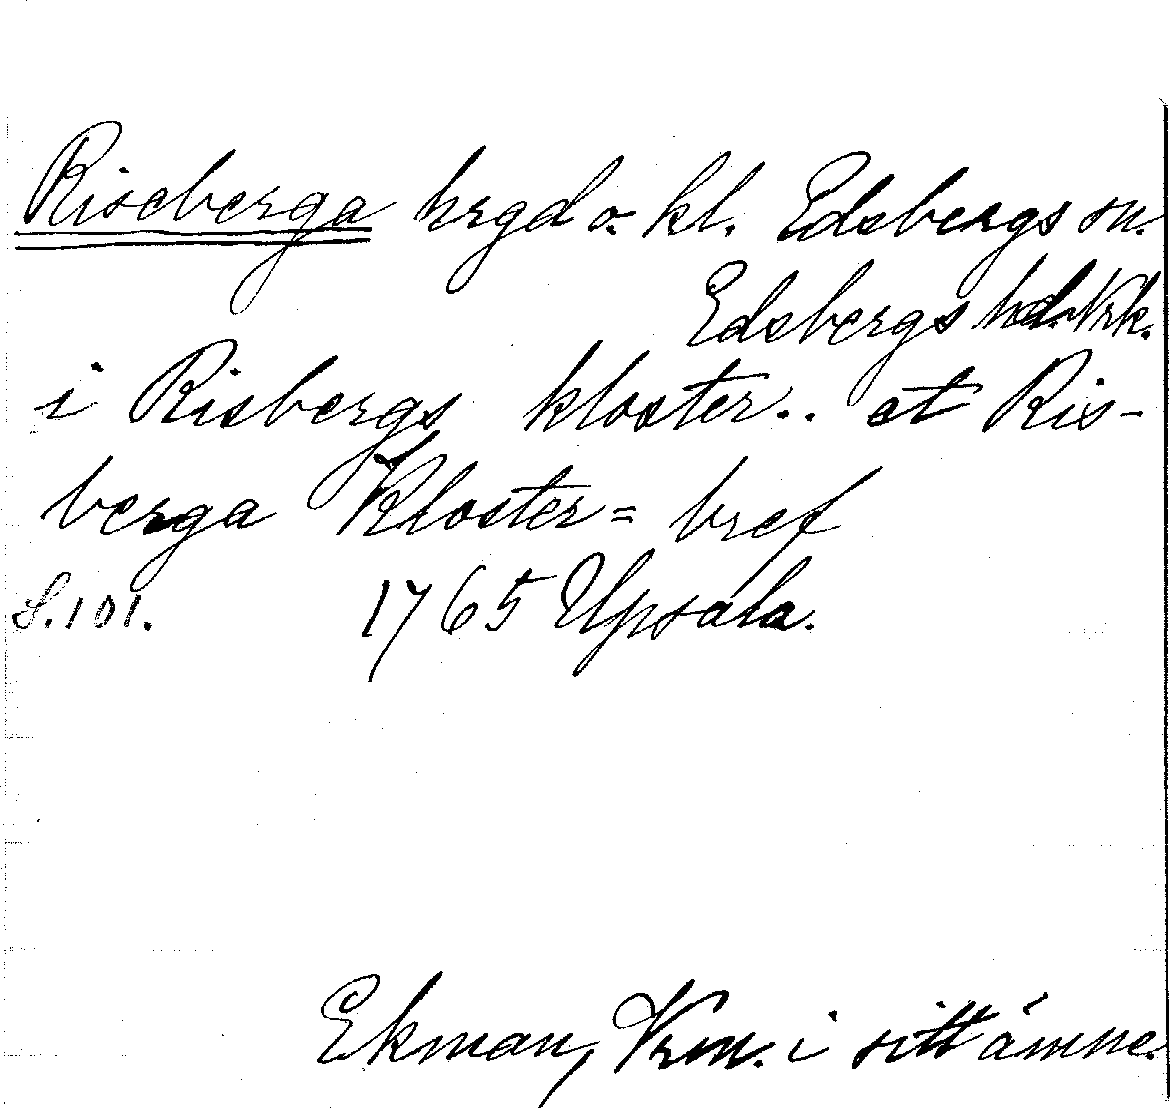 Riseberga hrgd o. kl. Edsbergs sn.
Edsbergs hd. Nrk.
i Risbergs kloster.. at Ris-
berga Kloster= bref
S. 101. 1765 Upsala.
Ekman, Vrm. i sitt ämne.